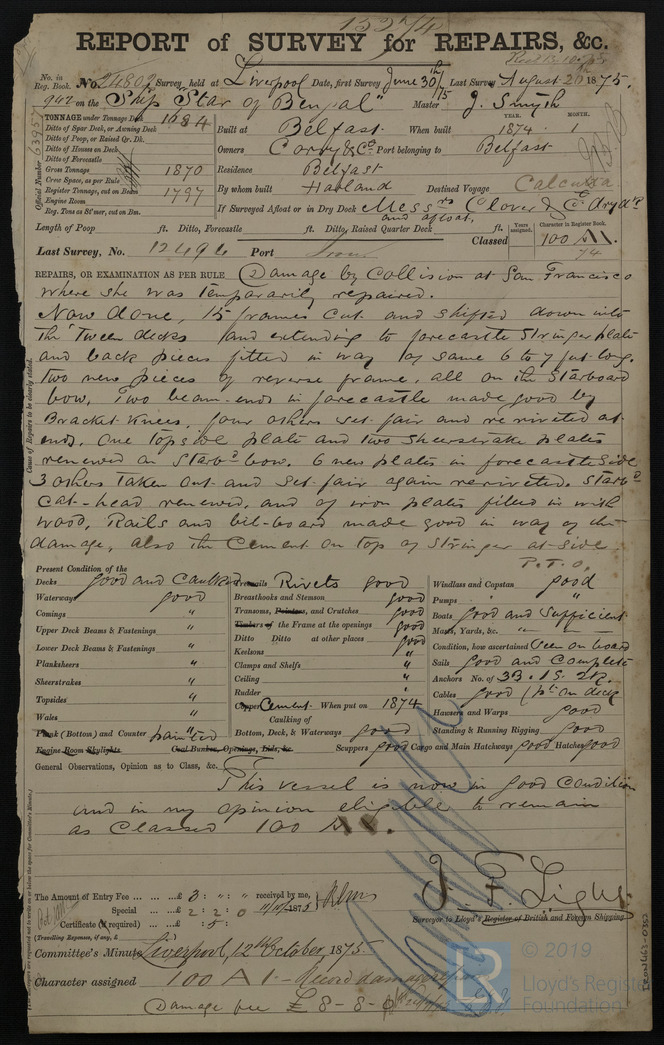 REPORT of SURVEY for REPAIRS, &c.
No. in Reg. Book. No 24802 Survey held at Liverpool Date, first Survey June 30th/75 Last Survey August 20th 1875.
942 on the Ship "Star of Bengal" Master J. Smyth
TONNAGE under Tonnage Deck 1684
Ditto of Spar Deck, or Awning Deck
Ditto of Poop, or Raised Qr. Dk.
Ditto of Houses on Deck
Ditto of Forecastle
Gross Tonnage 1870
Crew Space, as per Rule
Register Tonnage, cut on Beam 1797
Engine Room
Reg. Tons as St'mer, cut on Bm.
Official Number 63957
YEAR. MONTH.
Built at Belfast When built 1874 1
Owners Corry & Co Port belonging to Belfast
Residence Belfast
By whom built Harland Destined Voyage Calcutta
If Surveyed Afloat or in Dry Dock Messrs Clover & Co Dry dk
and afloat.
Length of Poop ft. Ditto, Forecastle ft. Ditto, Raised Quarter Deck ft.
Years assigned. Character in Register Book.
Last Survey, No. 12494 Port Classed 100 A1.
74
REPAIRS, OR EXAMINATION AS PER RULE Damage by Collision at San Francisco
where she was temporarily repaired.
Now done, 15 frames cut and shifted down into
the 'tween decks and extending to forecastle Stringer plate
and back pieces fitted in way of same 6 to 7 feet long.
Two new pieces of reverse frame, all on the Starboard
bow, Two beam-ends in forecastle made good by
Bracket-knees, four others set fair and reriveted at
ends. One topside plate and two sheerstrake plates
renewed on Starbd bow. 6 new plates in forecastle side
3 others taken out and set fair again reriveted. Starbd
Cat-head renewed, and of iron plates filled in with
wood, Rails and bil-board made good in way of the
damage, also the Cement on top of Stringer at side.
P.T.O.
Cause of Repairs to be clearly stated.
Present Condition of the
Decks good and caulked
Waterways good
Comings "
Upper Deck Beams & Fastenings "
Lower Deck Beams & Fastenings "
Planksheers "
Sheerstrakes "
Topsides "
Wales "
Plank (Bottom) and Counter painted
Engine Room Skylights Coal Bunker, Openings, Lids, &c.
Treenails Rivets good
Breasthooks and Stemson good
Transoms, Pointers, and Crutches good
Timbers of the Frame at the openings good
Ditto Ditto at other places good
Keelsons "
Clamps and Shelfs "
Ceiling "
Rudder "
Copper Cement When put on 1874
Caulking of
Bottom, Deck, & Waterways good
Scuppers good Cargo and Main Hatchways good Hatches good
Windlass and Capstan good
Pumps "
Boats good and Sufficient
Masts, Yards, &c. "
Condition, how ascertained Seen on board
Sails good and Complete
Anchors No. of 3B. 1S. 2K.
Cables good (pt on deck
Hawsers and Warps good
Standing & Running Rigging good
General Observations, Opinion as to Class, &c.
This vessel is now in good Condition
and in my opinion eligible to remain
as Classed 100 A1.
The Amount of Entry Fee £ 3 : " : " received by me,
Special £ 2 : 2 : 0 1875
Certificate (if required) : 5
(Travelling Expenses, if any, £
J. F. Light
Surveyor to Lloyd's Register of British and Foreign Shipping
Committee's Minute Liverpool, 12th October, 1875.
Character assigned 100 A1 - Record damage repd
Damage fee £ 8-8-0
LR
© 2019
Lloyd's Register
Foundation